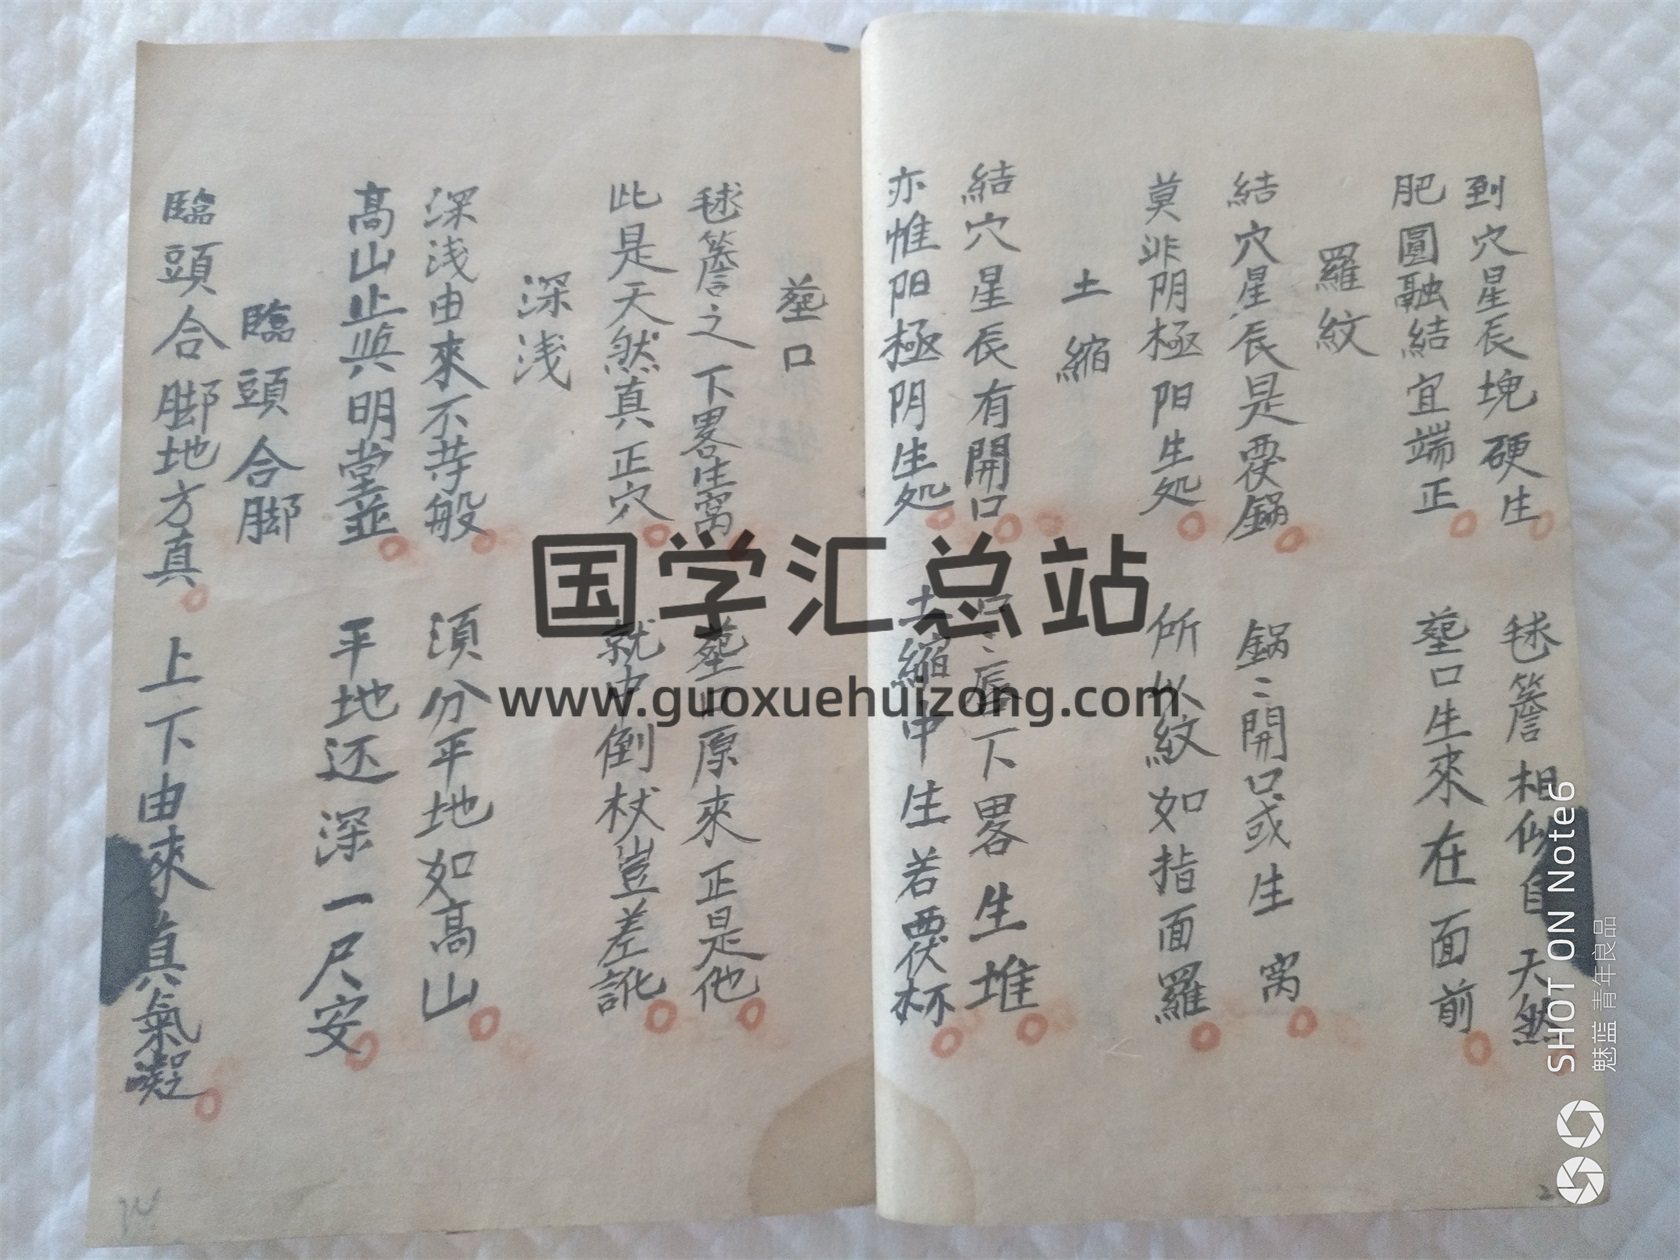 到穴星辰塊硬生 毬簷相似自天然
肥圓融結宜端正 塟口生來在面前
羅紋
結穴星辰是覆鍋 鍋〻開口或生窩
莫非阴極阳生処 所以紋如指面羅
土縮
結穴星辰有開口 唇下畧生堆
亦惟阳極阴生処 土縮中生若覆杯
塟口
毬簷之下畧生窩 塟口原來正是他
此是天然真正穴 就中倒杖豈差訛
深浅
深浅由來不等般 須分平地如高山
高山止與明堂並 平地还深一尺安
臨頭合脚
臨頭合脚地方真 上下由來真氣凝
国学汇总站
www.guoxuehuizong.com
SHOT ON Note6
魅蓝 青年良品
2